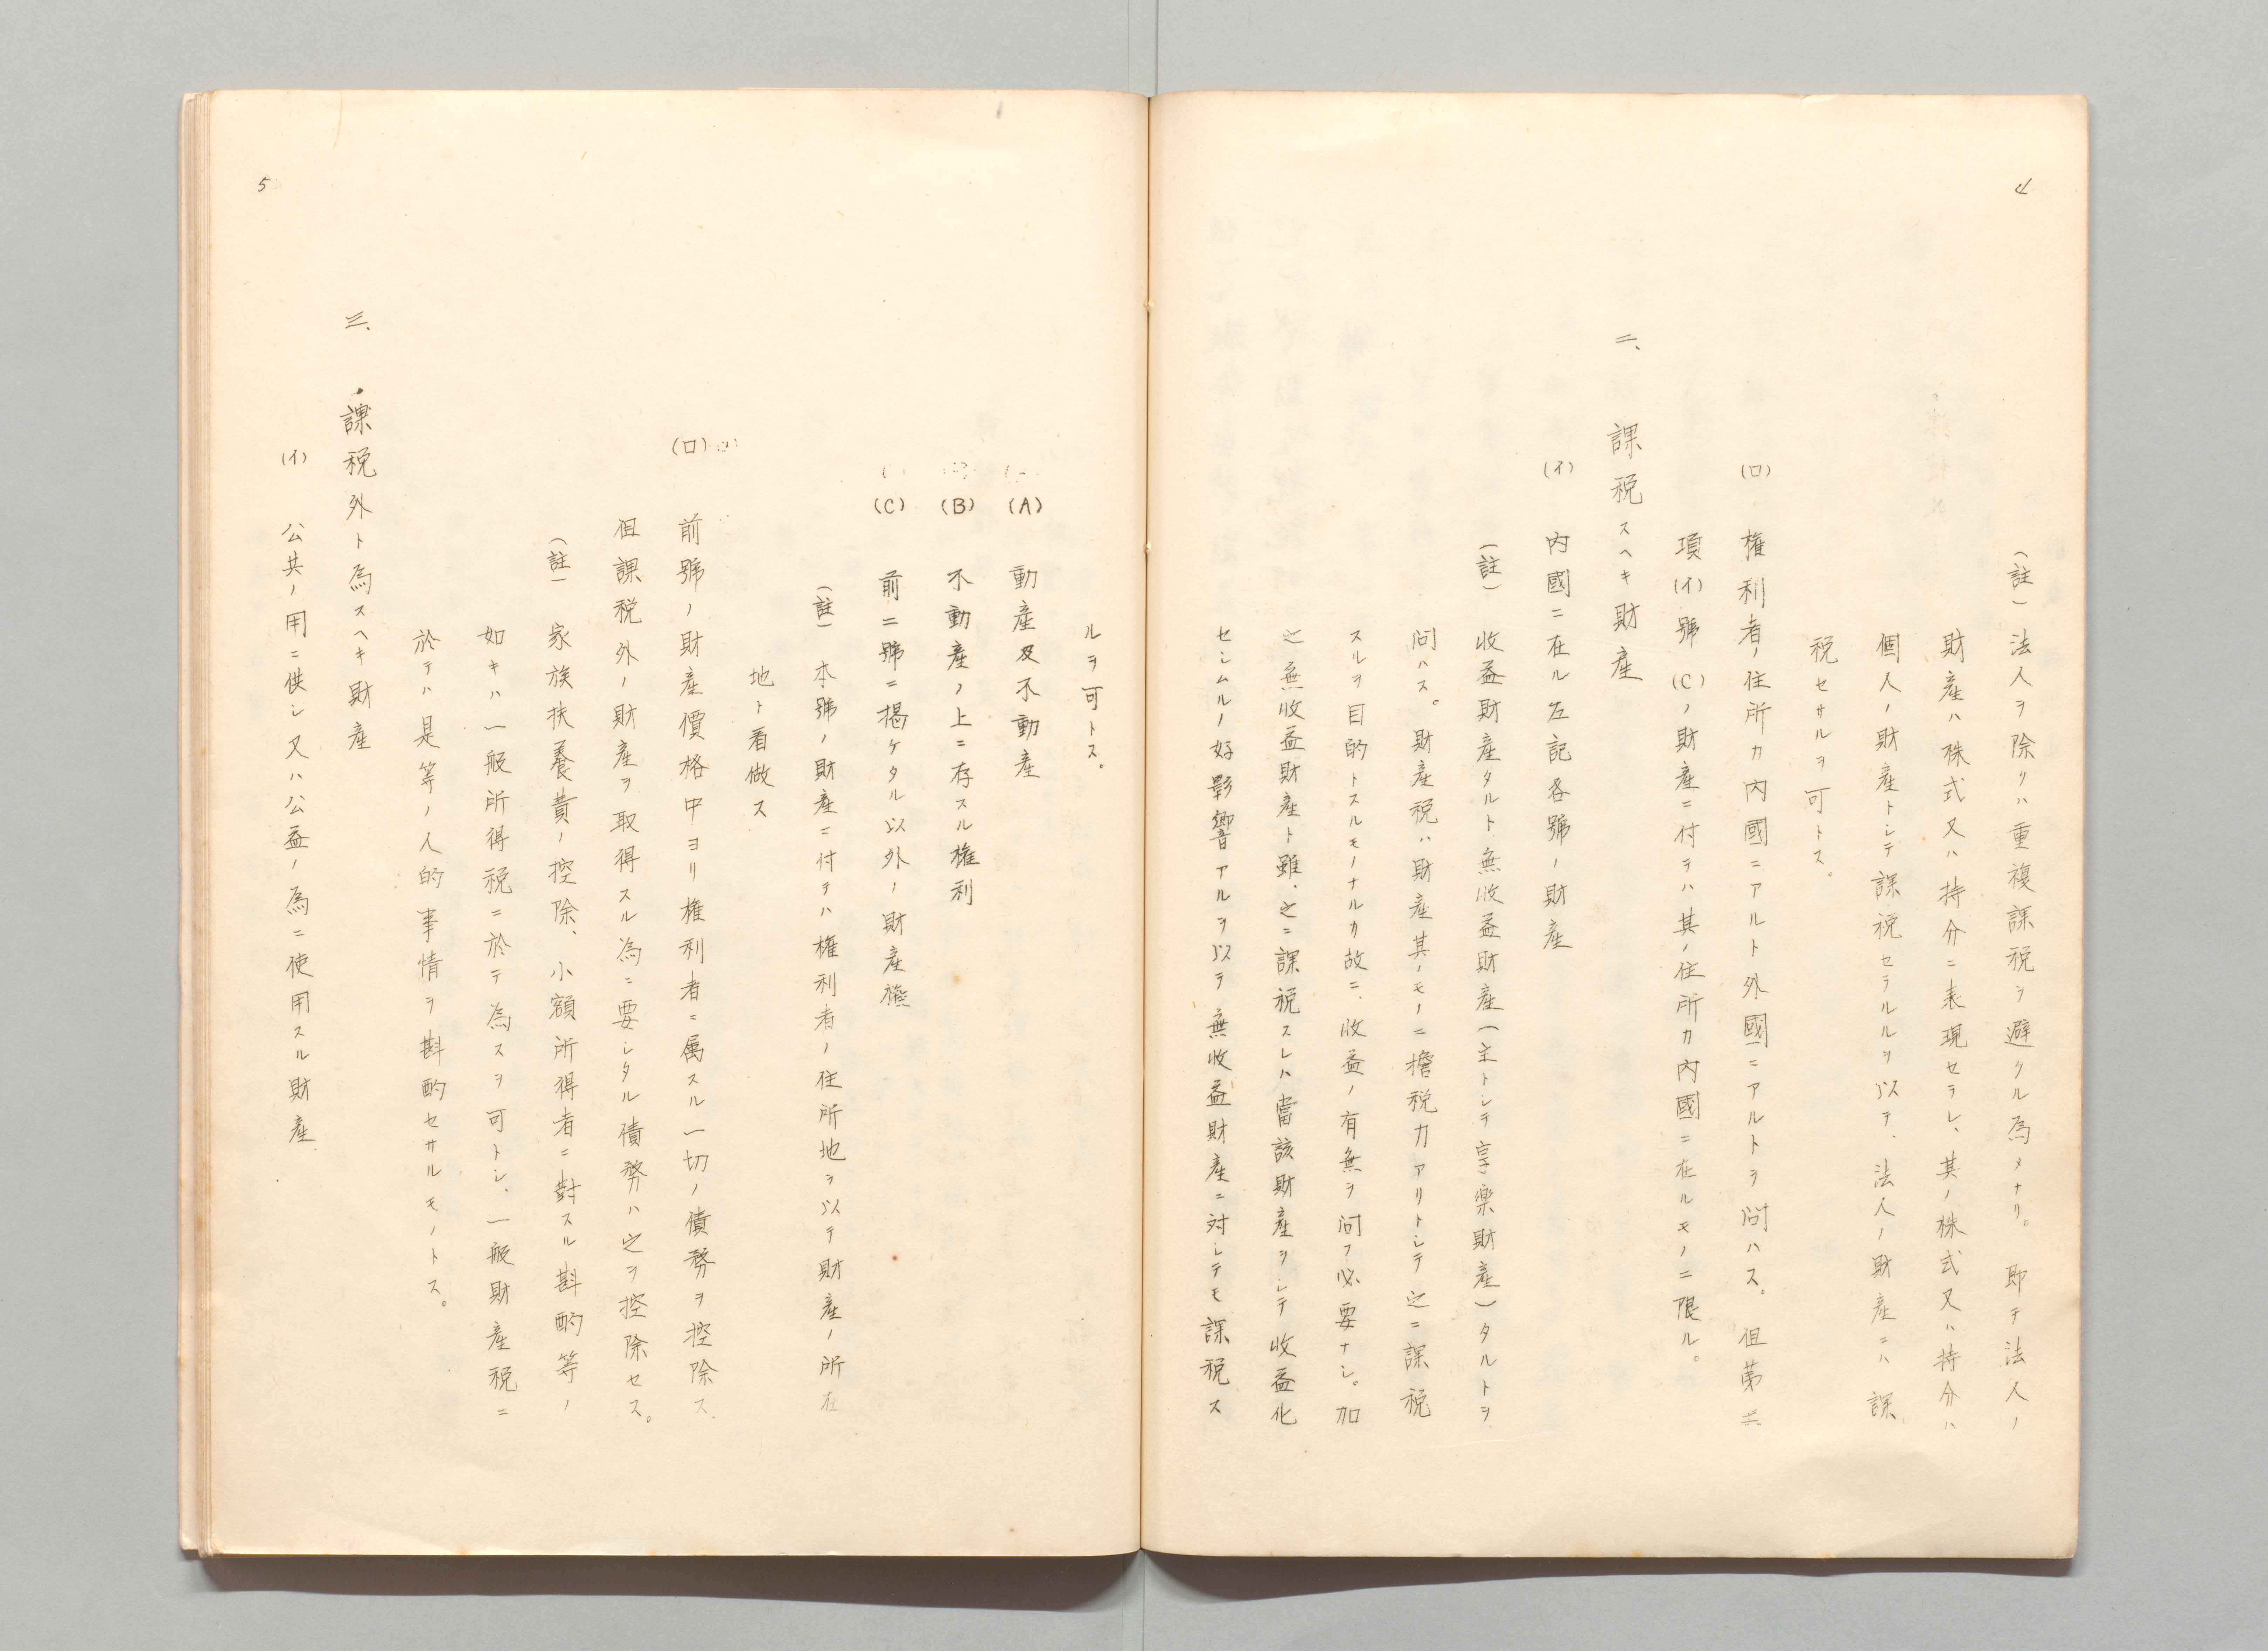 4
(註)法人ヲ除クハ重複課税ヲ避クル為メナリ。即チ法人ノ
財産ハ株式又ハ持分ニ表現セラレ、其ノ株式又ハ持分ハ
個人ノ財産トシテ課税セラルルヲ以テ、法人ノ財産ニハ課
税セサルヲ可トス。
(ロ) 権利者ノ住所カ内國ニアルト外國ニアルトヲ問ハス。但第二
項(イ)號(C)ノ財産ニ付テハ其ノ住所カ内國ニ在ルモノニ限ル。
二、 課税スヘキ財産
(イ) 内國ニ在ル左記各號ノ財産
(註) 收益財産タルト無收益財産(主トシテ享楽財産)タルトヲ
問ハス。財産税ハ財産其ノモノニ擔税力アリトシテ之ニ課税
スルヲ目的トスルモノナルカ故ニ、收益ノ有無ヲ問フ必要ナシ。加
之無收益財産ト雖、之ニ課税スレハ當該財産ヲシテ收益化
セシムルノ好影響アルヲ以テ無收益財産ニ対シテモ課税ス
5
ルヲ可トス。
(A) 動産及不動産
(B) 不動産ノ上ニ存スル権利
(C) 前二號ニ掲ケタル以外ノ財産権
(註) 本號ノ財産ニ付テハ権利者ノ住所地ヲ以テ財産ノ所在
地ト看做ス
(ロ) 前號ノ財産價格中ヨリ権利者ニ属スル一切ノ債務ヲ控除ス
但課税外ノ財産ヲ取得スル為ニ要シタル債務ハ之ヲ控除セス。
(註) 家族扶養費ノ控除、小額所得者ニ對スル斟酌等ノ
如キハ一般所得税ニ於テ為スヲ可トシ、一般財産税ニ
於テハ是等ノ人的事情ヲ斟酌セサルモノトス。
三、 課税外ト為スヘキ財産
(イ) 公共ノ用ニ供シ又ハ公益ノ為ニ使用スル財産